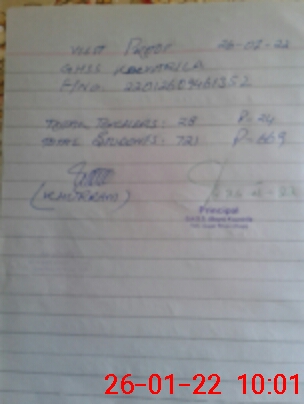 VISIT PROOF 26-01-22
GHSS
F/No. 22012609461352
TOTAL TEACHERS: 28 P=24
TOTAL STUDENTS: 721 P=669
(KHURRAM)
26-1-22
Principal
26-01-22 10:01